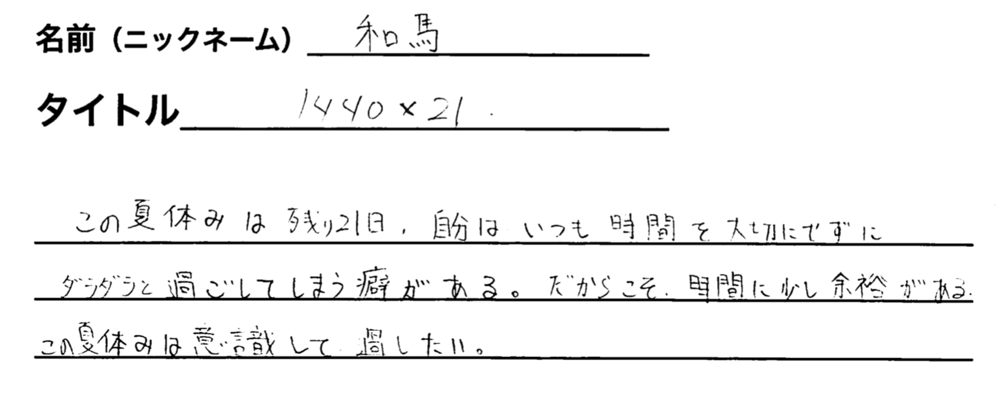 名前（ニックネーム） 和馬
タイトル 1440×21.
この夏休みは残り21日、自分はいつも時間を大切にでずに
ダラダラと過ごしてしまう癖がある。だからこそ、時間に少し余裕がある
この夏休みは意識して過したい。